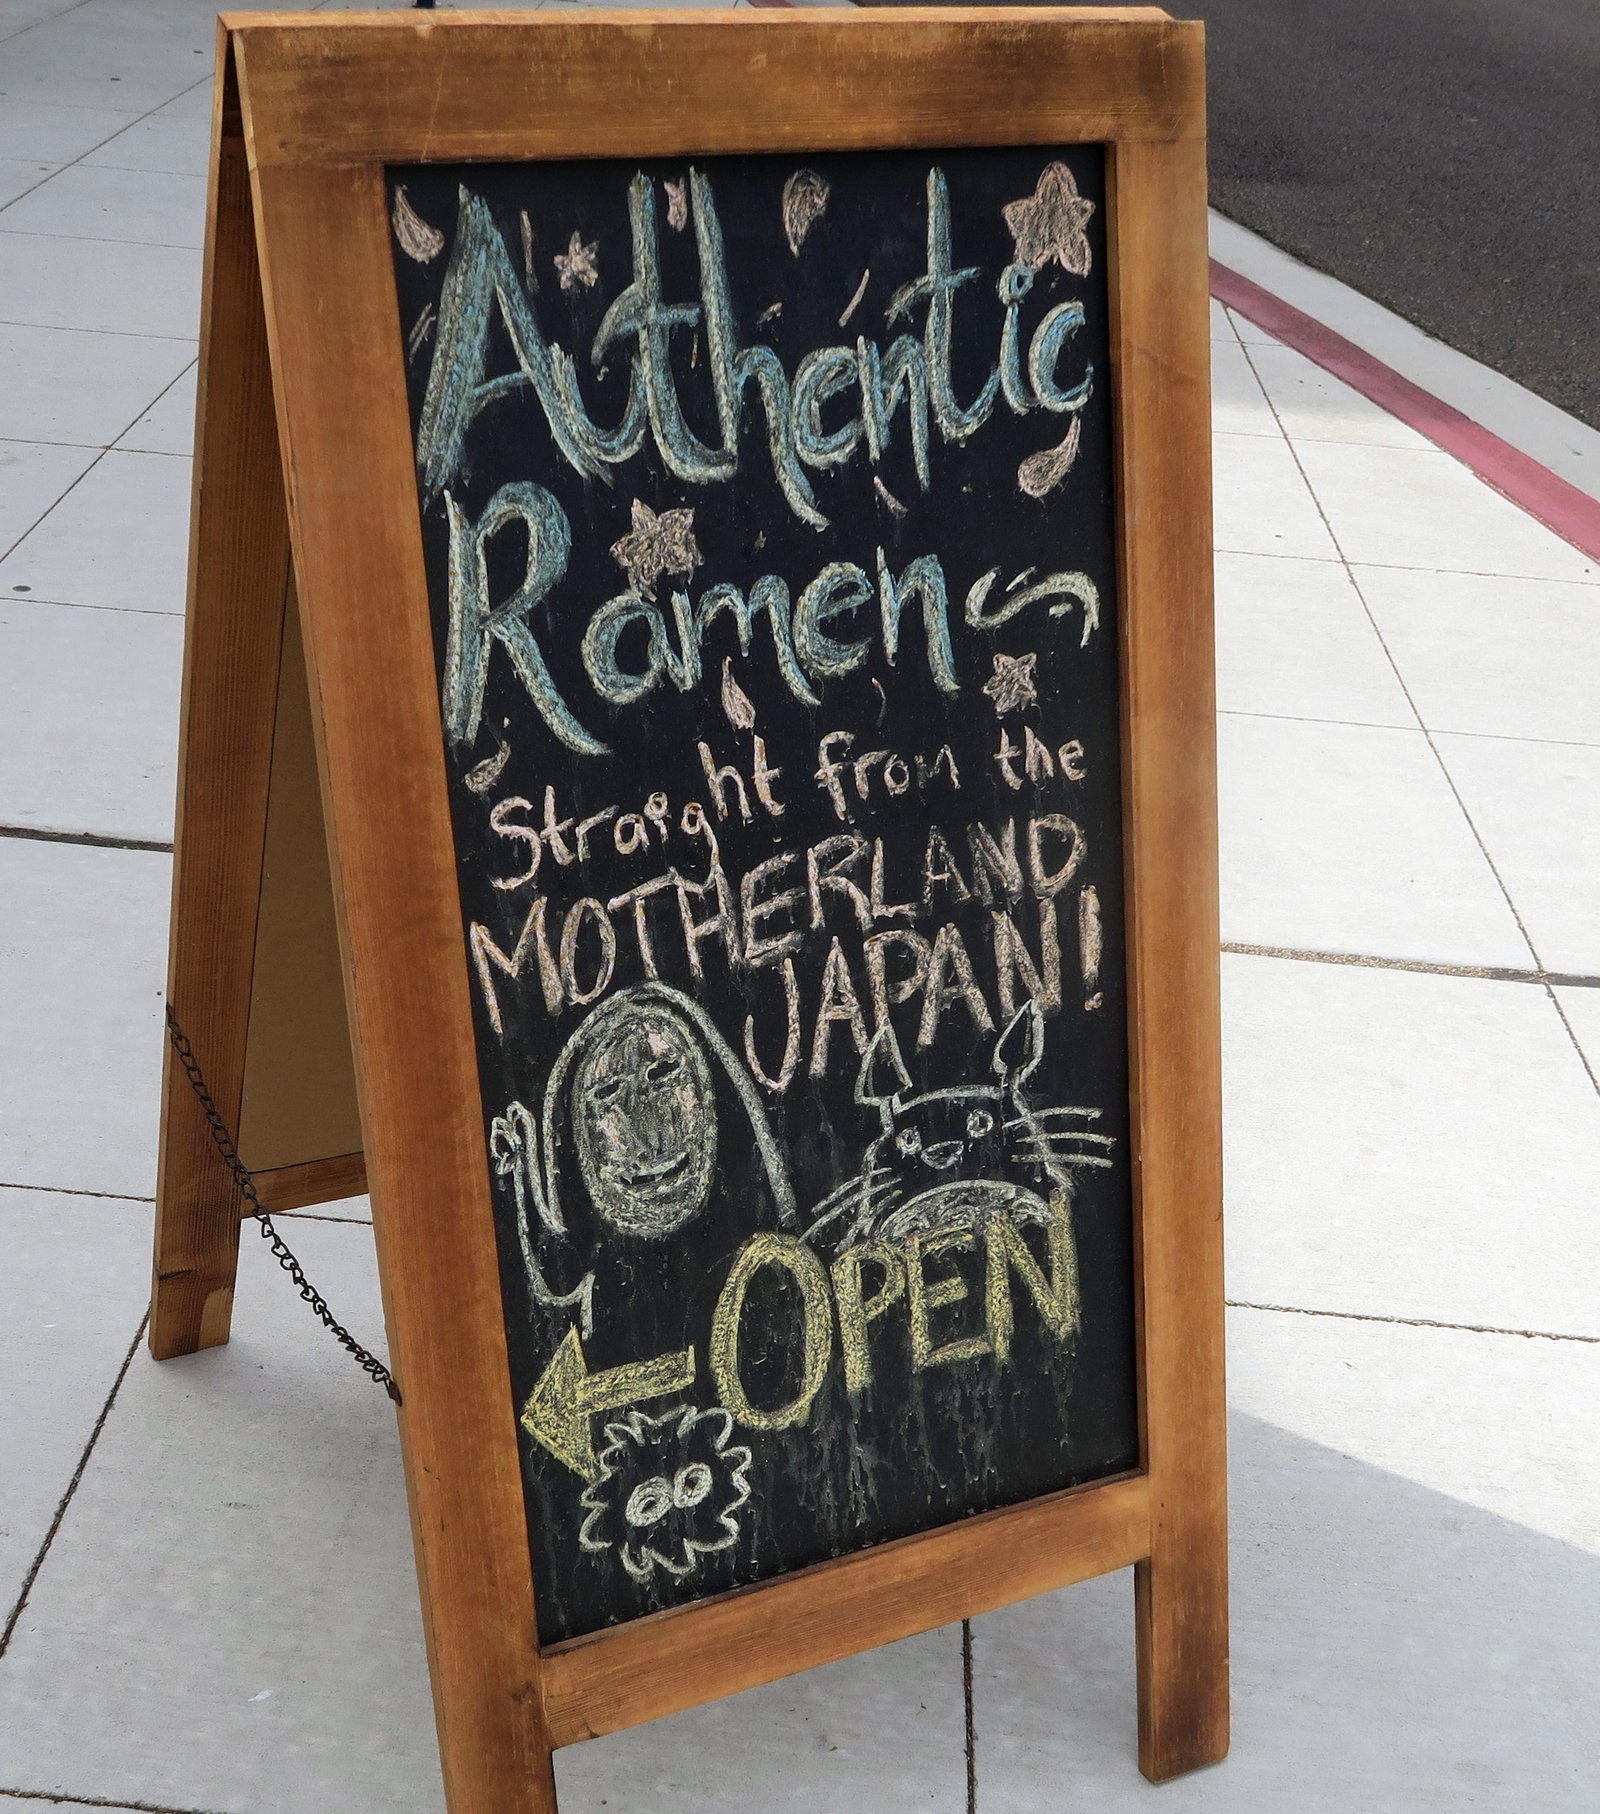 Authentic
Ramen
Straight from the
MOTHERLAND
JAPAN!
OPEN